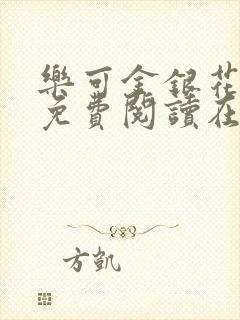 樂可金銀花
免費閱讀在
方凱